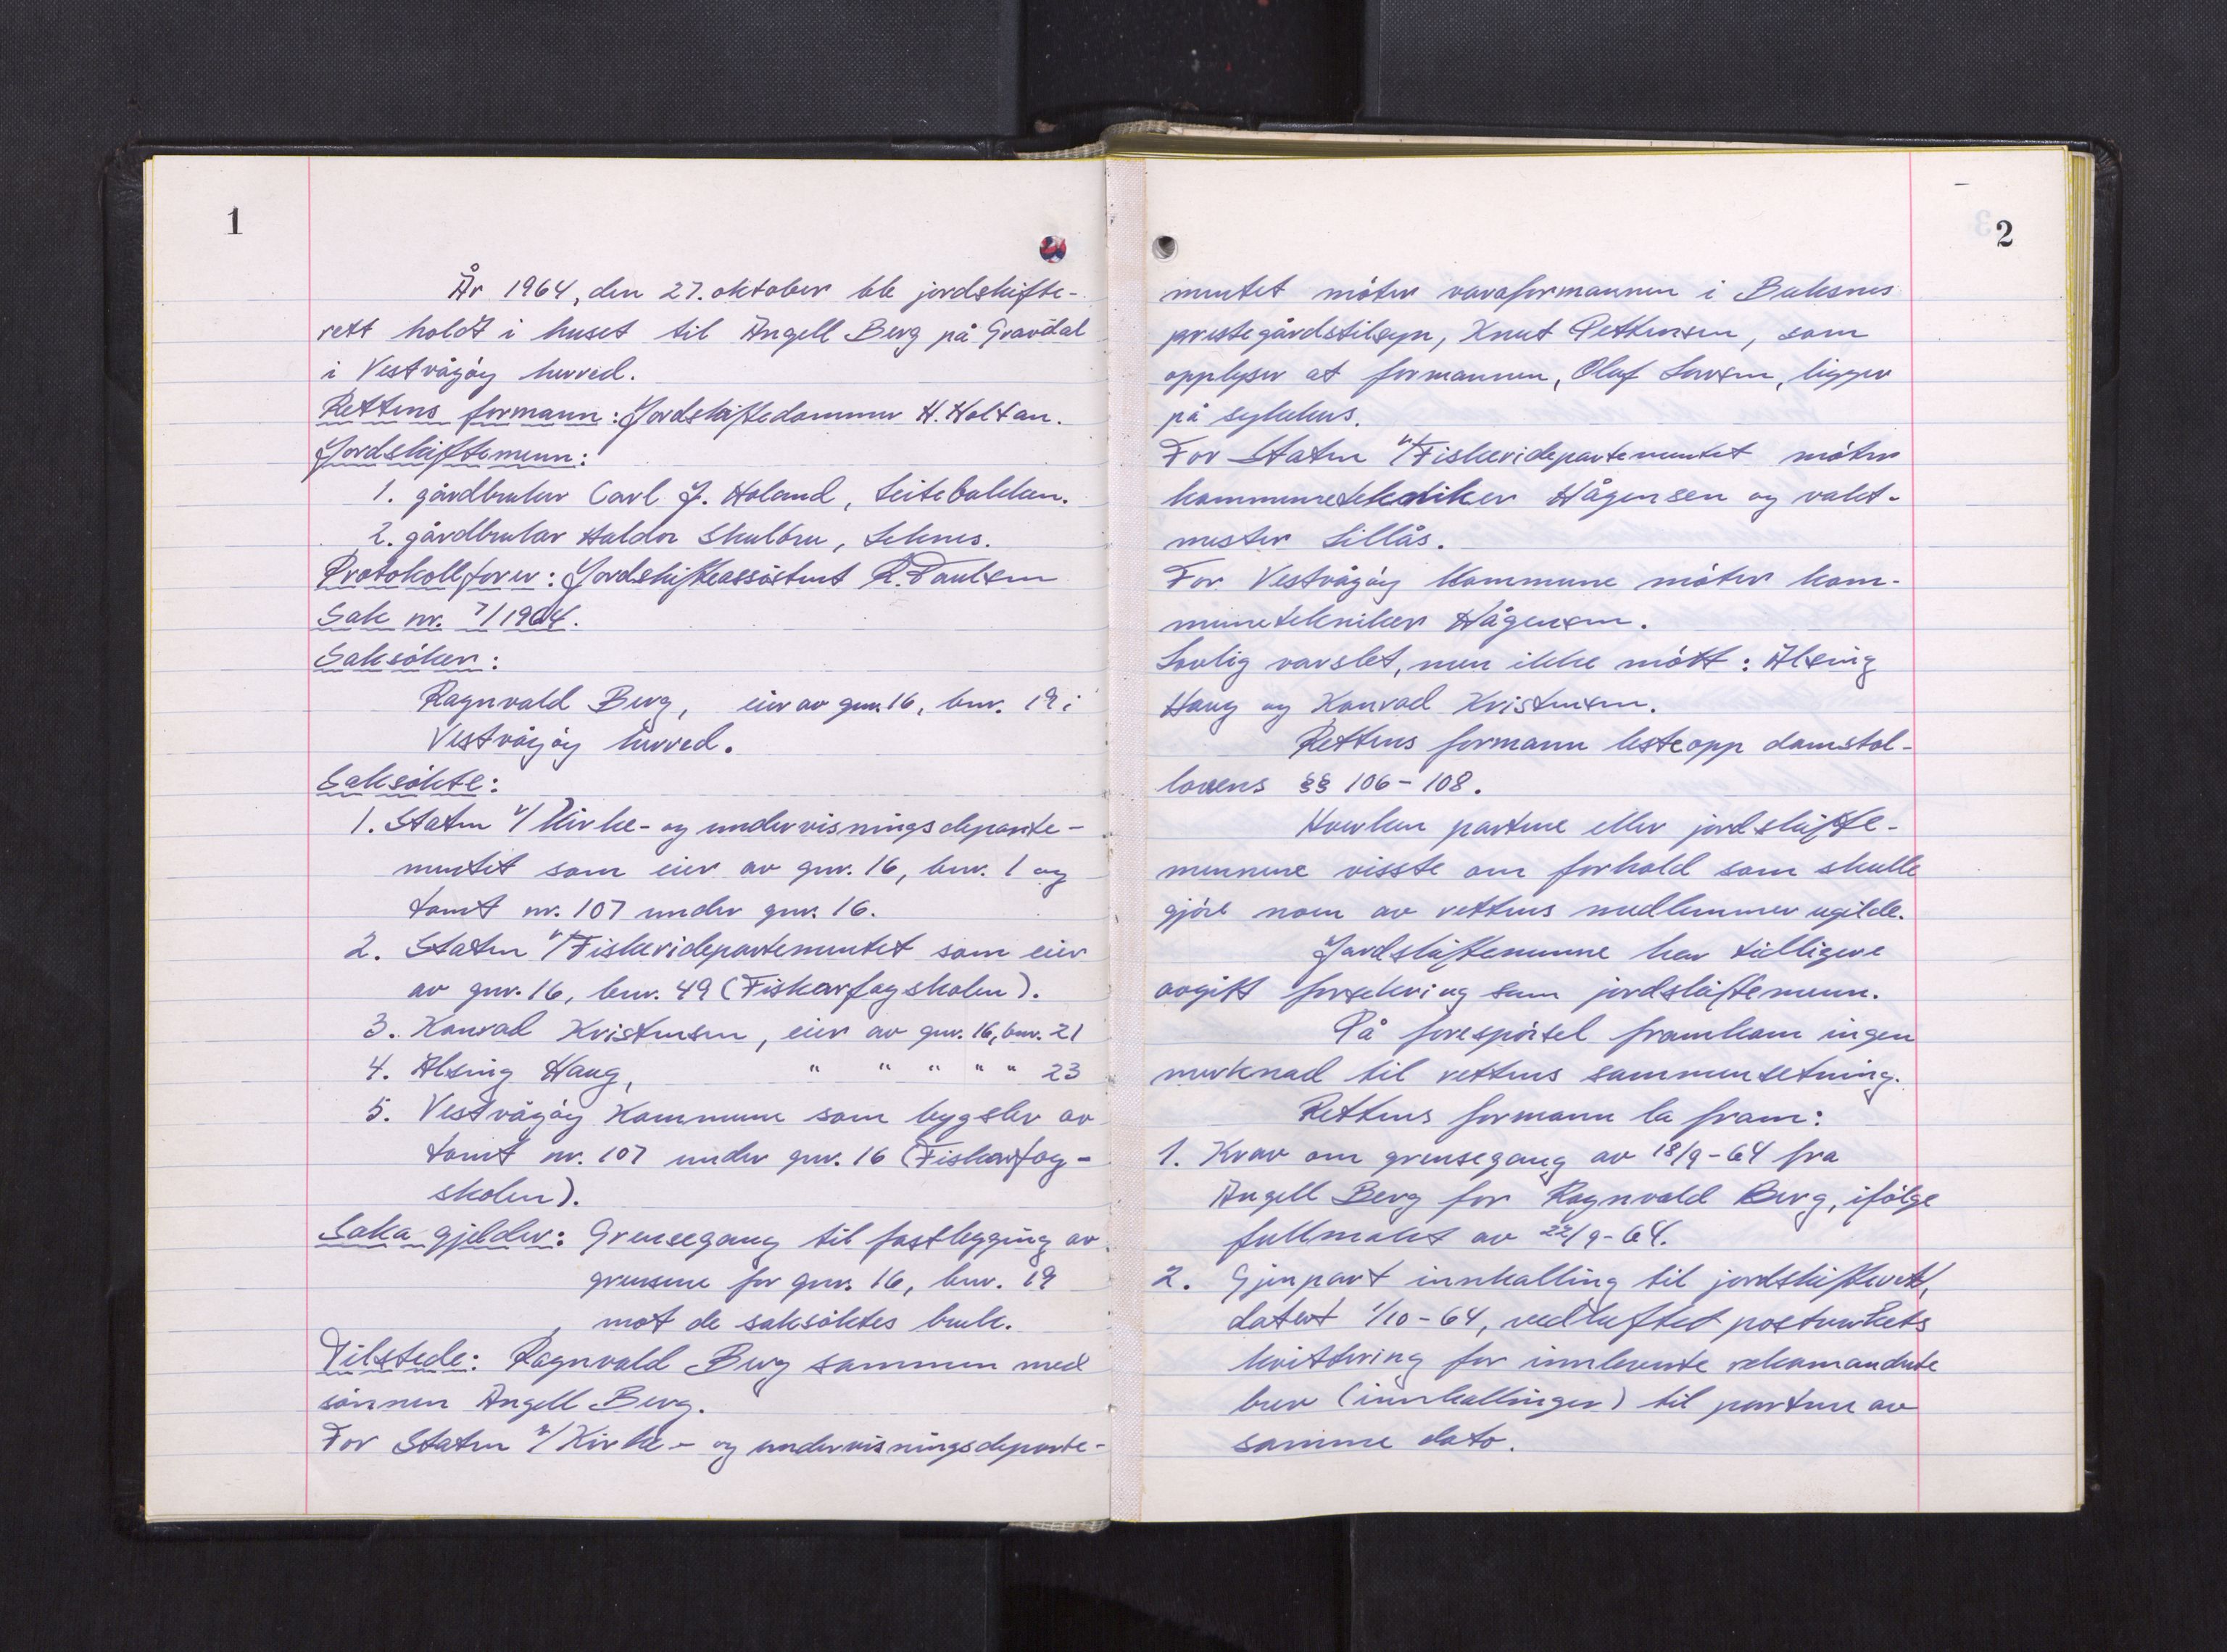 1
År 1964, den 27. oktober ble jordskifte-
rett holdt i huset til Angell Berg på Gravdal
i Vestvågøy herred.
Rettens formann: Jordskiftedommer H. Holtan.
Jordskiftemenn:
1. gårdbruker Carl J. Holand, Leitebakken.
2. gårdbruker Haldor Skulbru, Leknes.
Protokollfører: Jordskifteassistent R. Paulsen
Sak nr. 7/1964.
Saksøker:
Ragnvald Berg, eier av gnr. 16, bnr. 19 i
Vestvågøy herred.
Saksøkte:
1. Staten v/Kirke- og undervisningsdeparte-
mentet som eier av gnr. 16, bnr. 1 og
tomt nr. 107 under gnr. 16.
2. Staten v/Fiskeridepartementet som eier
av gnr. 16, bnr. 49 (Fiskarfagskolen).
3. Konrad Kristensen, eier av gnr. 16, bnr. 21
4. Alsing Haug, " " " " " 23
5. Vestvågøy Kommune som bygsler av
tomt nr. 107 under gnr. 16 (Fiskarfag-
skolen).
Saka gjelder: Grensegang til fastlegging av
grensene for gnr. 16, bnr. 19
mot de saksøktes bruk.
Tilstede: Ragnvald Berg sammen med
sønnen Angell Berg.
For Staten v/Kirke- og undervisningsdeparte-
2
mentet møter varaformannen i Buksnes
prestegårdstilsyn, Knut Pettersen, som
opplyser at formannen, Oluf Larsen, ligger
på sykehus.
For Staten v/Fiskeridepartementet møter
kommunetekniker Hågensen og vakt-
mester Lillås.
For Vestvågøy Kommune møter kom-
munetekniker Hågensen.
Lovlig varslet, men ikke møtt: Alsing
Haug og Konrad Kristensen.
Rettens formann leste opp domstol-
lovens §§ 106-108.
Hverken partene eller jordskifte-
mennene visste om forhold som skulle
gjøre noen av rettens medlemmer ugilde.
Jordskiftemennene har tidligere
avgitt forsikring som jordskiftemenn.
På forespørsel framkom ingen
merknad til rettens sammensetning.
Rettens formann la fram:
1. Krav om grensegang av 18/9-64 fra
Angell Berg for Ragnvald Berg, ifølge
fullmakt av 22/9-64.
2. Gjenpart innkalling til jordskifterett,
datert 1/10-64, vedheftet postverkets
kvittering for innleverte rekomanderte
brev (innkallinger) til partene av
samme dato.